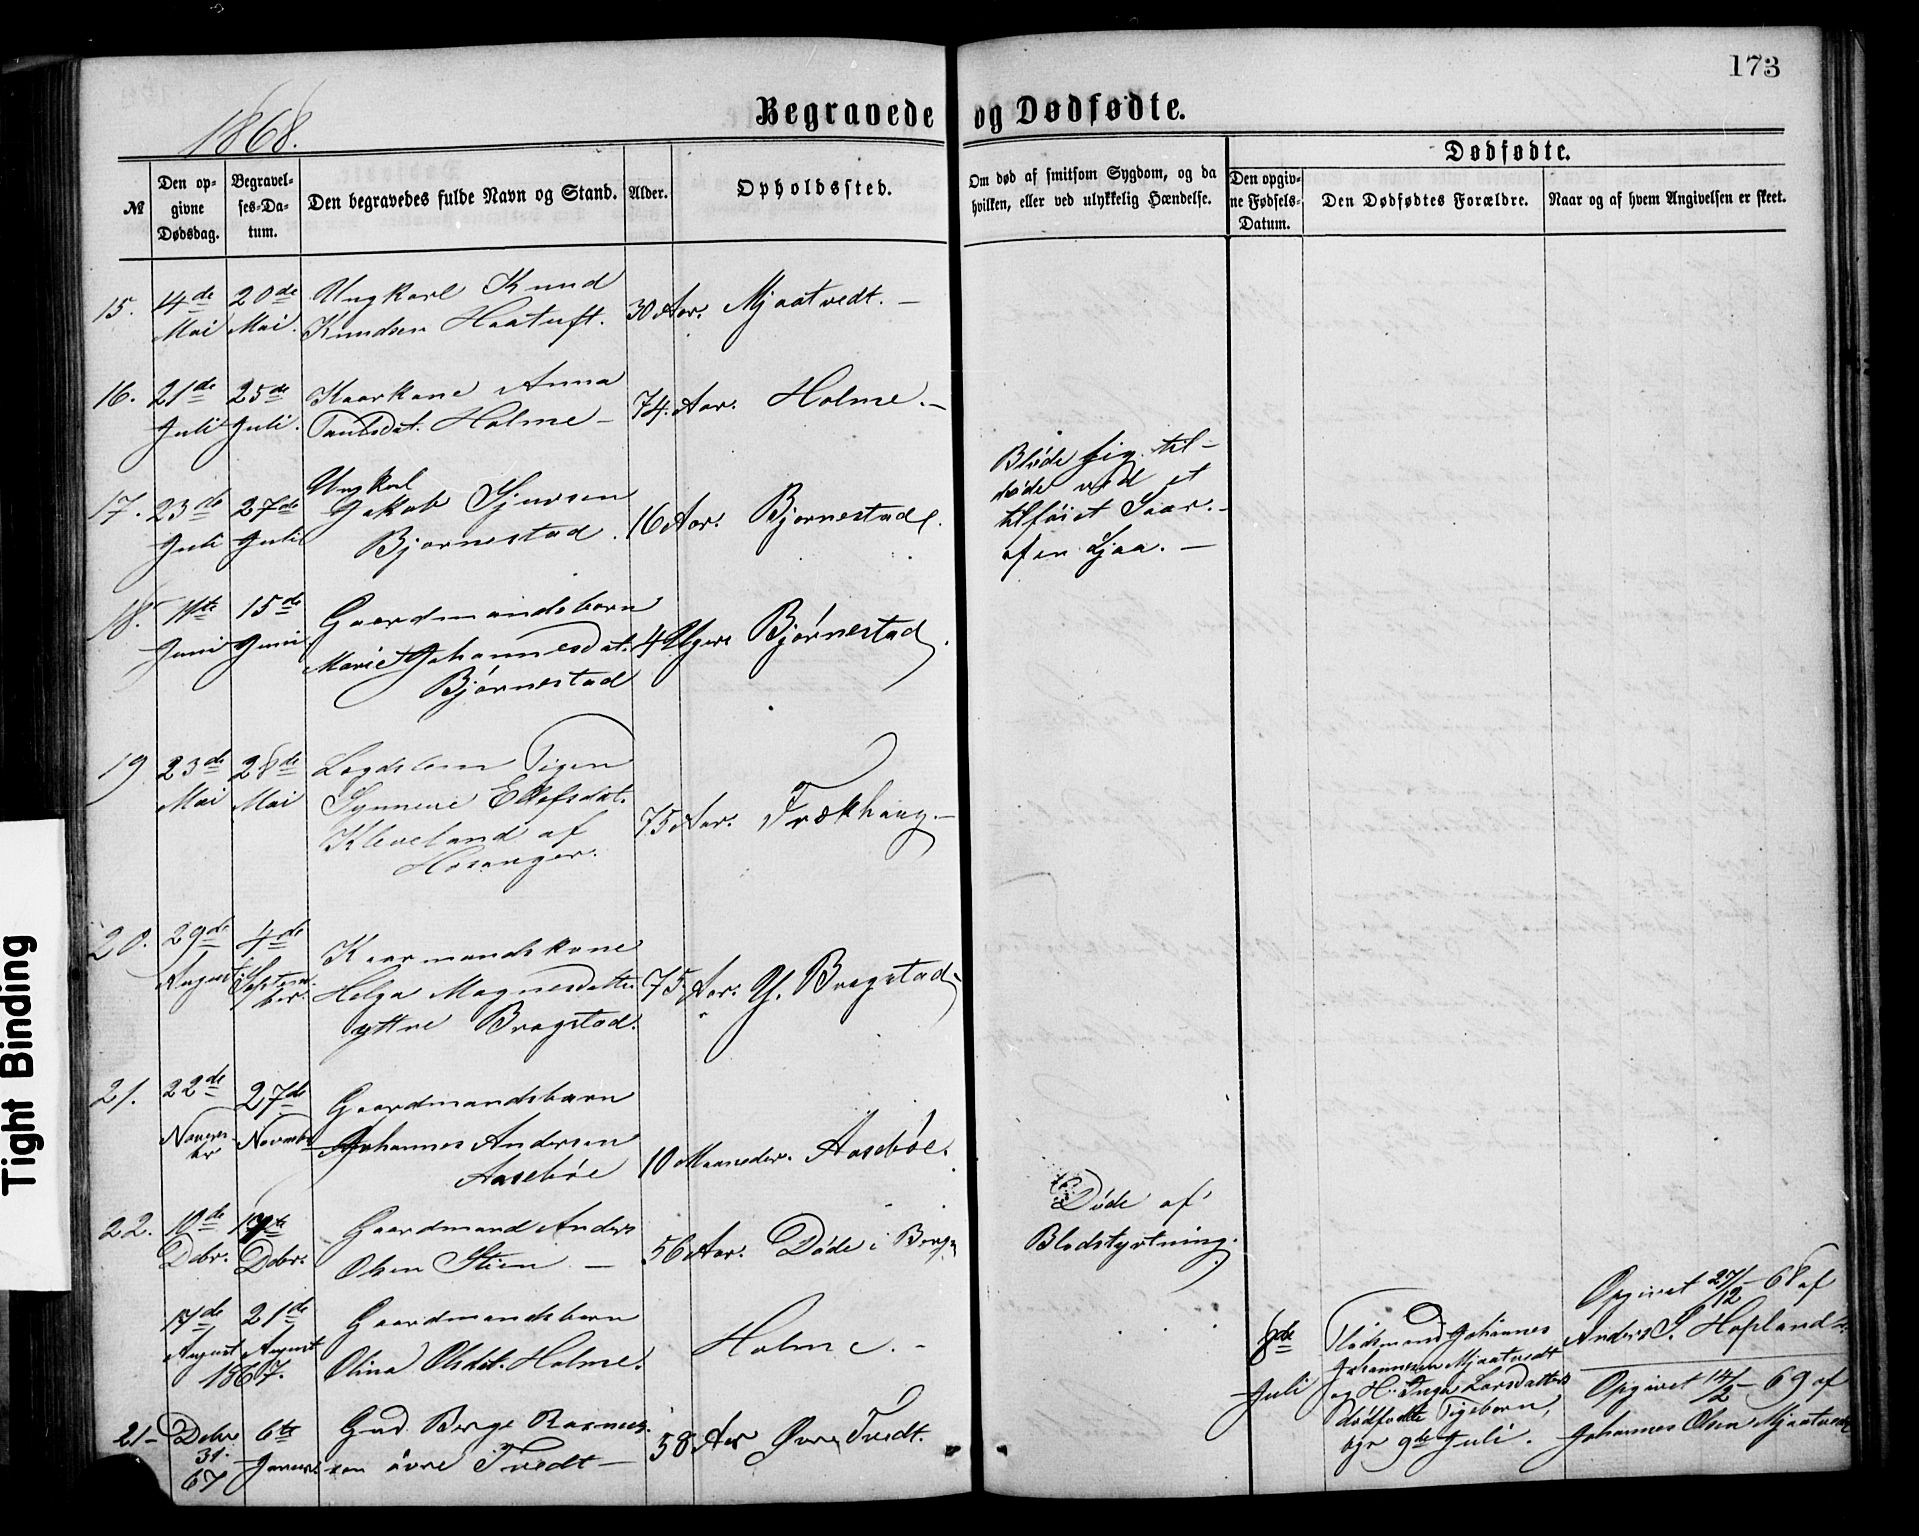 173
1868.
Begravede og Dødfødte.
№
Den opgivne Dødsdag.
Begravelses-Datum.
Den begravedes fulde Navn og Stand.
Alder.
Opholdssted.
Om død af smitsom Sygdom, og da hvilken, eller ved ulykkelig Hændelse.
Dødfødte.
Den opgivne Fødsels-Datum.
Den Dødfødtes Forældre.
Naar og af hvem Angivelsen er skeet.
15. 14de 20de Ungkarl Knud 30 Aar. Mjaatvedt. –
Mai Mai. Knudsen Haatuft.
16. 21de 25de Kaarkone Anna 74. Aar. Holme. –
Juli Juli. Paulsdat. Holme –
17. 23de 27de Ungkarl
Juli Juli Jakob Sjursen 16 Aar. Bjørnestad.
Bjørnestad.
Bløde sig til-
døde ved et
tilføiet Saar. –
af en Ljaa. –
18. 11te 15de Gaardmandsbarn
Juni Juni Marie Johannesdat. 4 Uger Bjørnestad.
Bjørnestad
19 23de 28de Lægdslem Pigen
Mai Mai Synneve Ellefsdat. 75 Aar. Frækhaug –
Kleveland af
Hosanger.
20. 29de 4de Kaarmandskone
August Septem- Helga Magnesdatter 75 Aar. Y. Bragstad –
ber. yttre Bragstad.
21. 22de 27de Gaardmandsbarn
Novem- Novembr Johannes Andersen 10 Maaneder. Aasebøe.
br Aasebøe
22. 10de 17te Gaardmand Anders
Debr. Debr. Olsen Stien – 56 Aar. Døde i Bergen
Døde af
Blodstyrtning.
17de 21de Gaardmandsbarn
August August Olina Olsdat. Holme. Holme. –
1867.
21 – Debr 6te Gmd. Berge Rasmus- 58 Aar Øvre Tvedt.
31. Januar sen øvre Tvedt –
67
8de Pladsmand Johannes
Juli Johannesen Mjaatvedt
og H. Inga Larsdatters
dødfødte Pigebarn,
bgr 9de Juli.
Opgivet 27/12 – 68 af
Anders J. Hopland
Opgivet 14/2 – 69 af
Johannes Olsen Mjaatvedt
Tight Binding